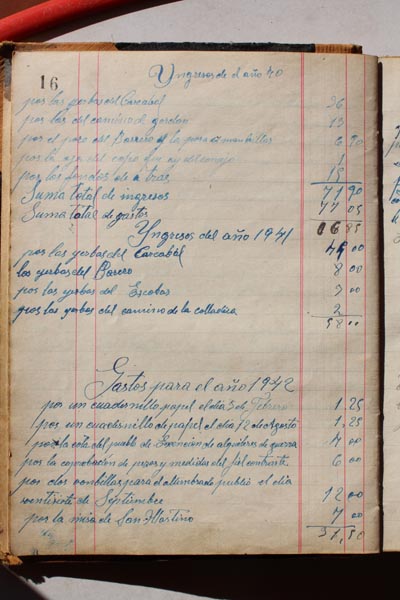 16
Yngresos de el año 40
por las yerbas del Carcabal 26
por las del camino de gordon 13
por el poro del Barrero y la para 6 90
por la del 1
por los de a tras 15
Suma total de ingresos 71 90
Suma total de gastos 05
Yngresos del año 1941
por las yerbas del Carcabal 00
las yerbas del Barero 8 00
por las yerbas del Escobar 00
por las yerbas del camino de la 2
58 00
Gastos para el año 1942
por un cuadernillo papel el dia 5 de Febrero 1,25
por un cuadernillo de papel el dia 12 de agosto 1,25
por la del pueblo de de de guerra 00
por la comprobacion de pesos y medidas del fiel contraste 6 00
por dos bombillas para el alumbrado public el dia
veintisiete de Septiembre 12 00
por la misa de San Martino 7 00